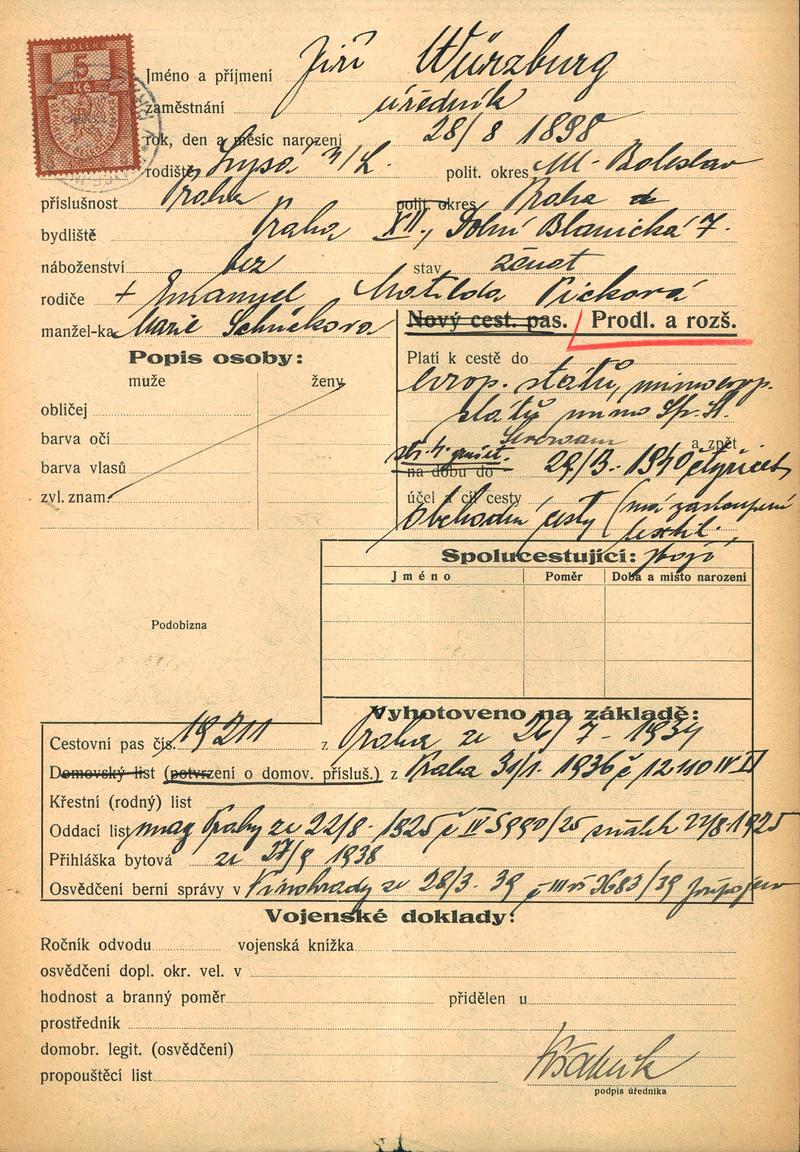 KOLEK
5
Kč
Jméno a příjmení Jiří Würzburg
zaměstnání úředník
rok, den a měsíc narození 28/8 1898
rodiště Lysá n/L. polit. okres Ml. Boleslav
příslušnost Praha polit. okres Praha
bydliště Praha XII., Dolní Blanická 7.
náboženství bez stav ženat
rodiče + Emanuel Matilda Picková
manžel-ka Marie Schückova
Nový cest. pas. / Prodl. a rozš.
Popis osoby:
muže ženy
obličej
barva očí
barva vlasů
zvl. znam.
Platí k cestě do
evrop. států, mimoevrop.
států mimo Sp. St.
a zpět
na dobu do 29/3. 1940 čtyřicet
účel a cíl cesty
obchodní cesty (má zastoupení
textil.
Spolucestující:
Jméno Poměr Doba a místo narození
Podobizna
Vyhotoveno na základě:
Cestovní pas čís. 19211 z Praha ze 26/7 - 1934
Domovský list (potvrzení o domov. přísluš.) z Praha 31/1. 1936 č 12110 IV II
Křestní (rodný) list
Oddací list mag Prahy ze 22/8. 1925 č IV 5990/25 sňatek 22/8. 1925
Přihláška bytová ze 27/9 1938
Osvědčení berní správy v Vinohrady ze 28/3. 39 č III 3683/39
Vojenské doklady:
Ročník odvodu vojenská knížka
osvědčení dopl. okr. vel. v
hodnost a branný poměr přidělen u
prostředník
domobr. legit. (osvědčení)
propouštěcí list
podpis úředníka